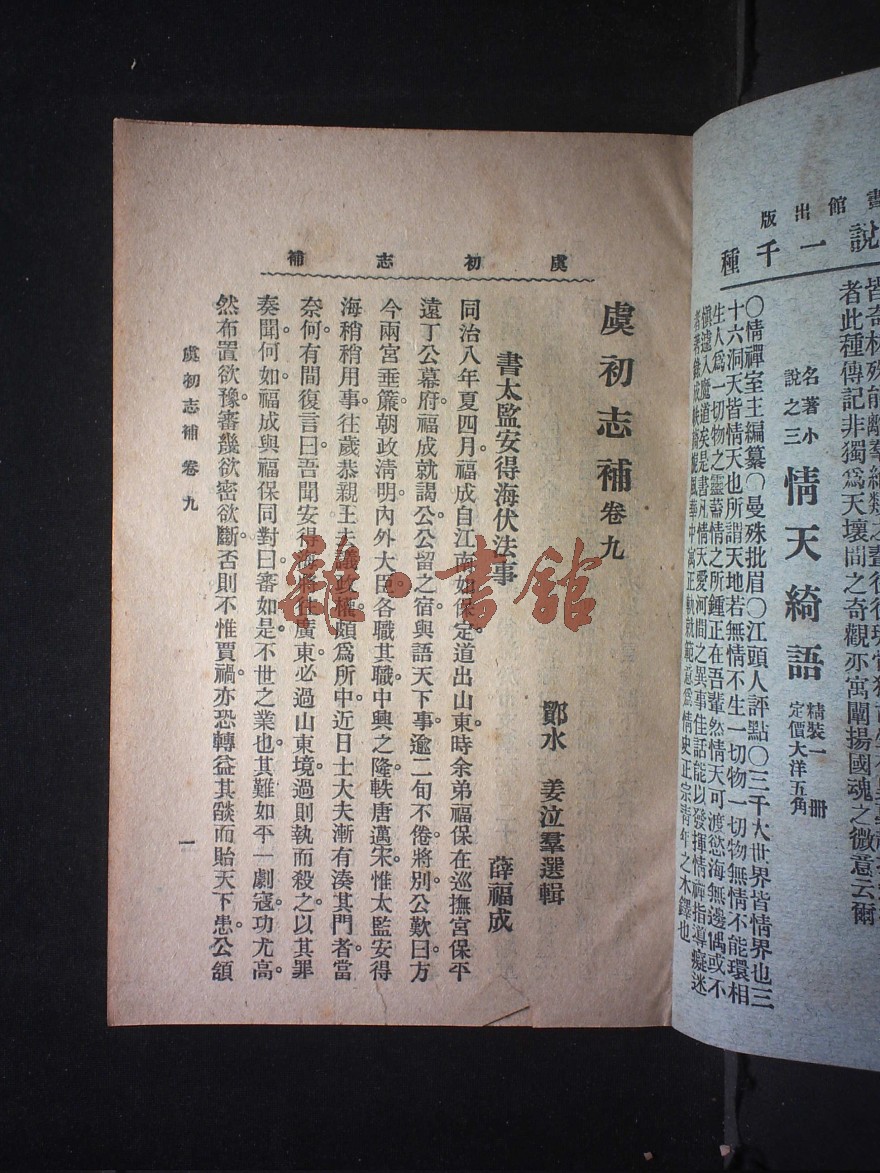 皆奇材殊能
者此種傳記非獨爲天壤間之奇觀亦寓闡揚國魂之微意云爾
館出版
說一千種
名著小
說之三
情天綺語
精裝一冊
定價大洋五角
〇情禪室主編纂〇曼殊批眉〇江頭人評點〇三千大世界皆情界也三
十六洞天皆情天也所謂天地若無情不生一切物一切物無情不能環相
生人爲一切物之靈蓋情之所鍾正在吾輩然情天可渡慾海無邊偶或不
愼遽入魔道矣是書凡情天愛河間之異事佳話能以發揮情神指導癡迷
風華中寓正軌就範意爲情史正宗靑年之木鐸也
虞初志補
虞初志補卷九
鄞水 姜泣羣選輯
書太監安得海伏法事
薛福成
同治八年夏四月。福成自江南如保定道出山東時余弟福保在巡撫宮保平
遠丁公幕府。福成就謁公公留之宿與語天下事逾二旬不倦將別公歎曰方
今兩宮垂簾。朝政淸明。內外大臣。各職其職中興之隆軼唐邁宋。惟太監安得
海稍稍用事。往歲恭親王去議政權頗爲所中近日士大夫漸有湊其門者當
奈何。有間復言曰吾聞安得海將往廣東。必過山東境過則執而殺之。以其罪
奏聞。何如。福成與福保同對曰審如是。不世之業也。其難如平一劇寇。功尤高。
然布置欲豫。審幾欲密欲斷。否則不惟賈禍。亦恐轉益其燄而貽天下患。公頷
虞初志補 卷九
一
雜·書館